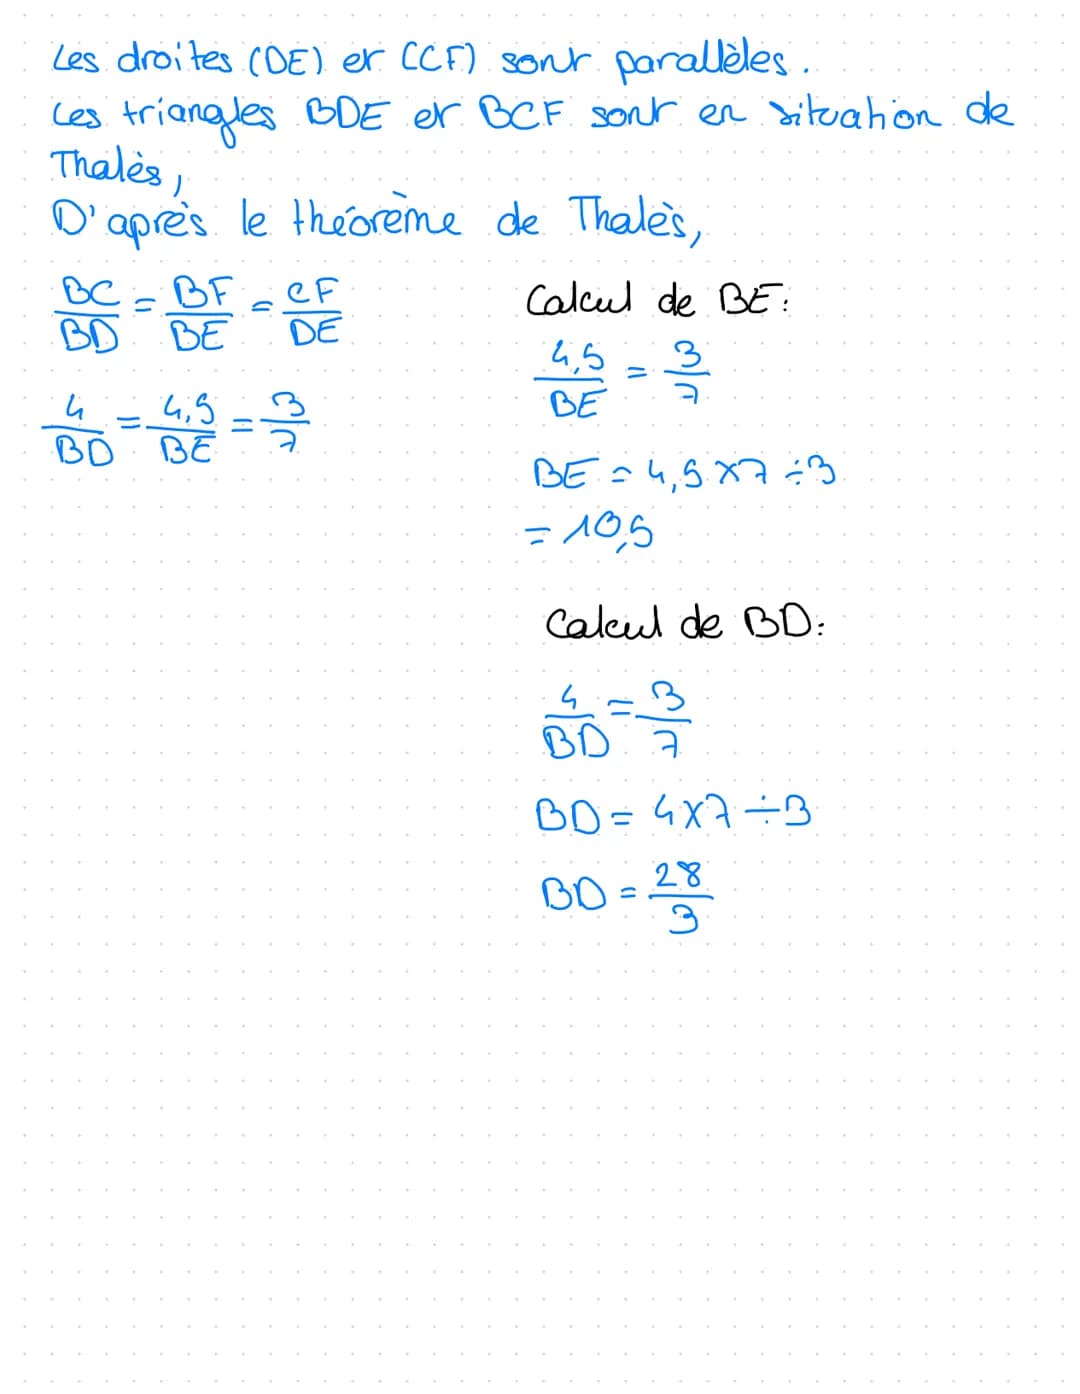 Les droites (DE) et (CF) sont parallèles.
Les triangles BDE et BCF sont en situation de
Thalès,
D'après le théorème de Thalès,
BC/BD = BF/BE = CF/DE
4/BD = 4,5/BE = 3/7
Calcul de BE:
4,5/BE = 3/7
BE = 4,5 × 7 ÷ 3
= 10,5
Calcul de BD:
4/BD = 3/7
BD = 4 × 7 ÷ 3
BD = 28/3